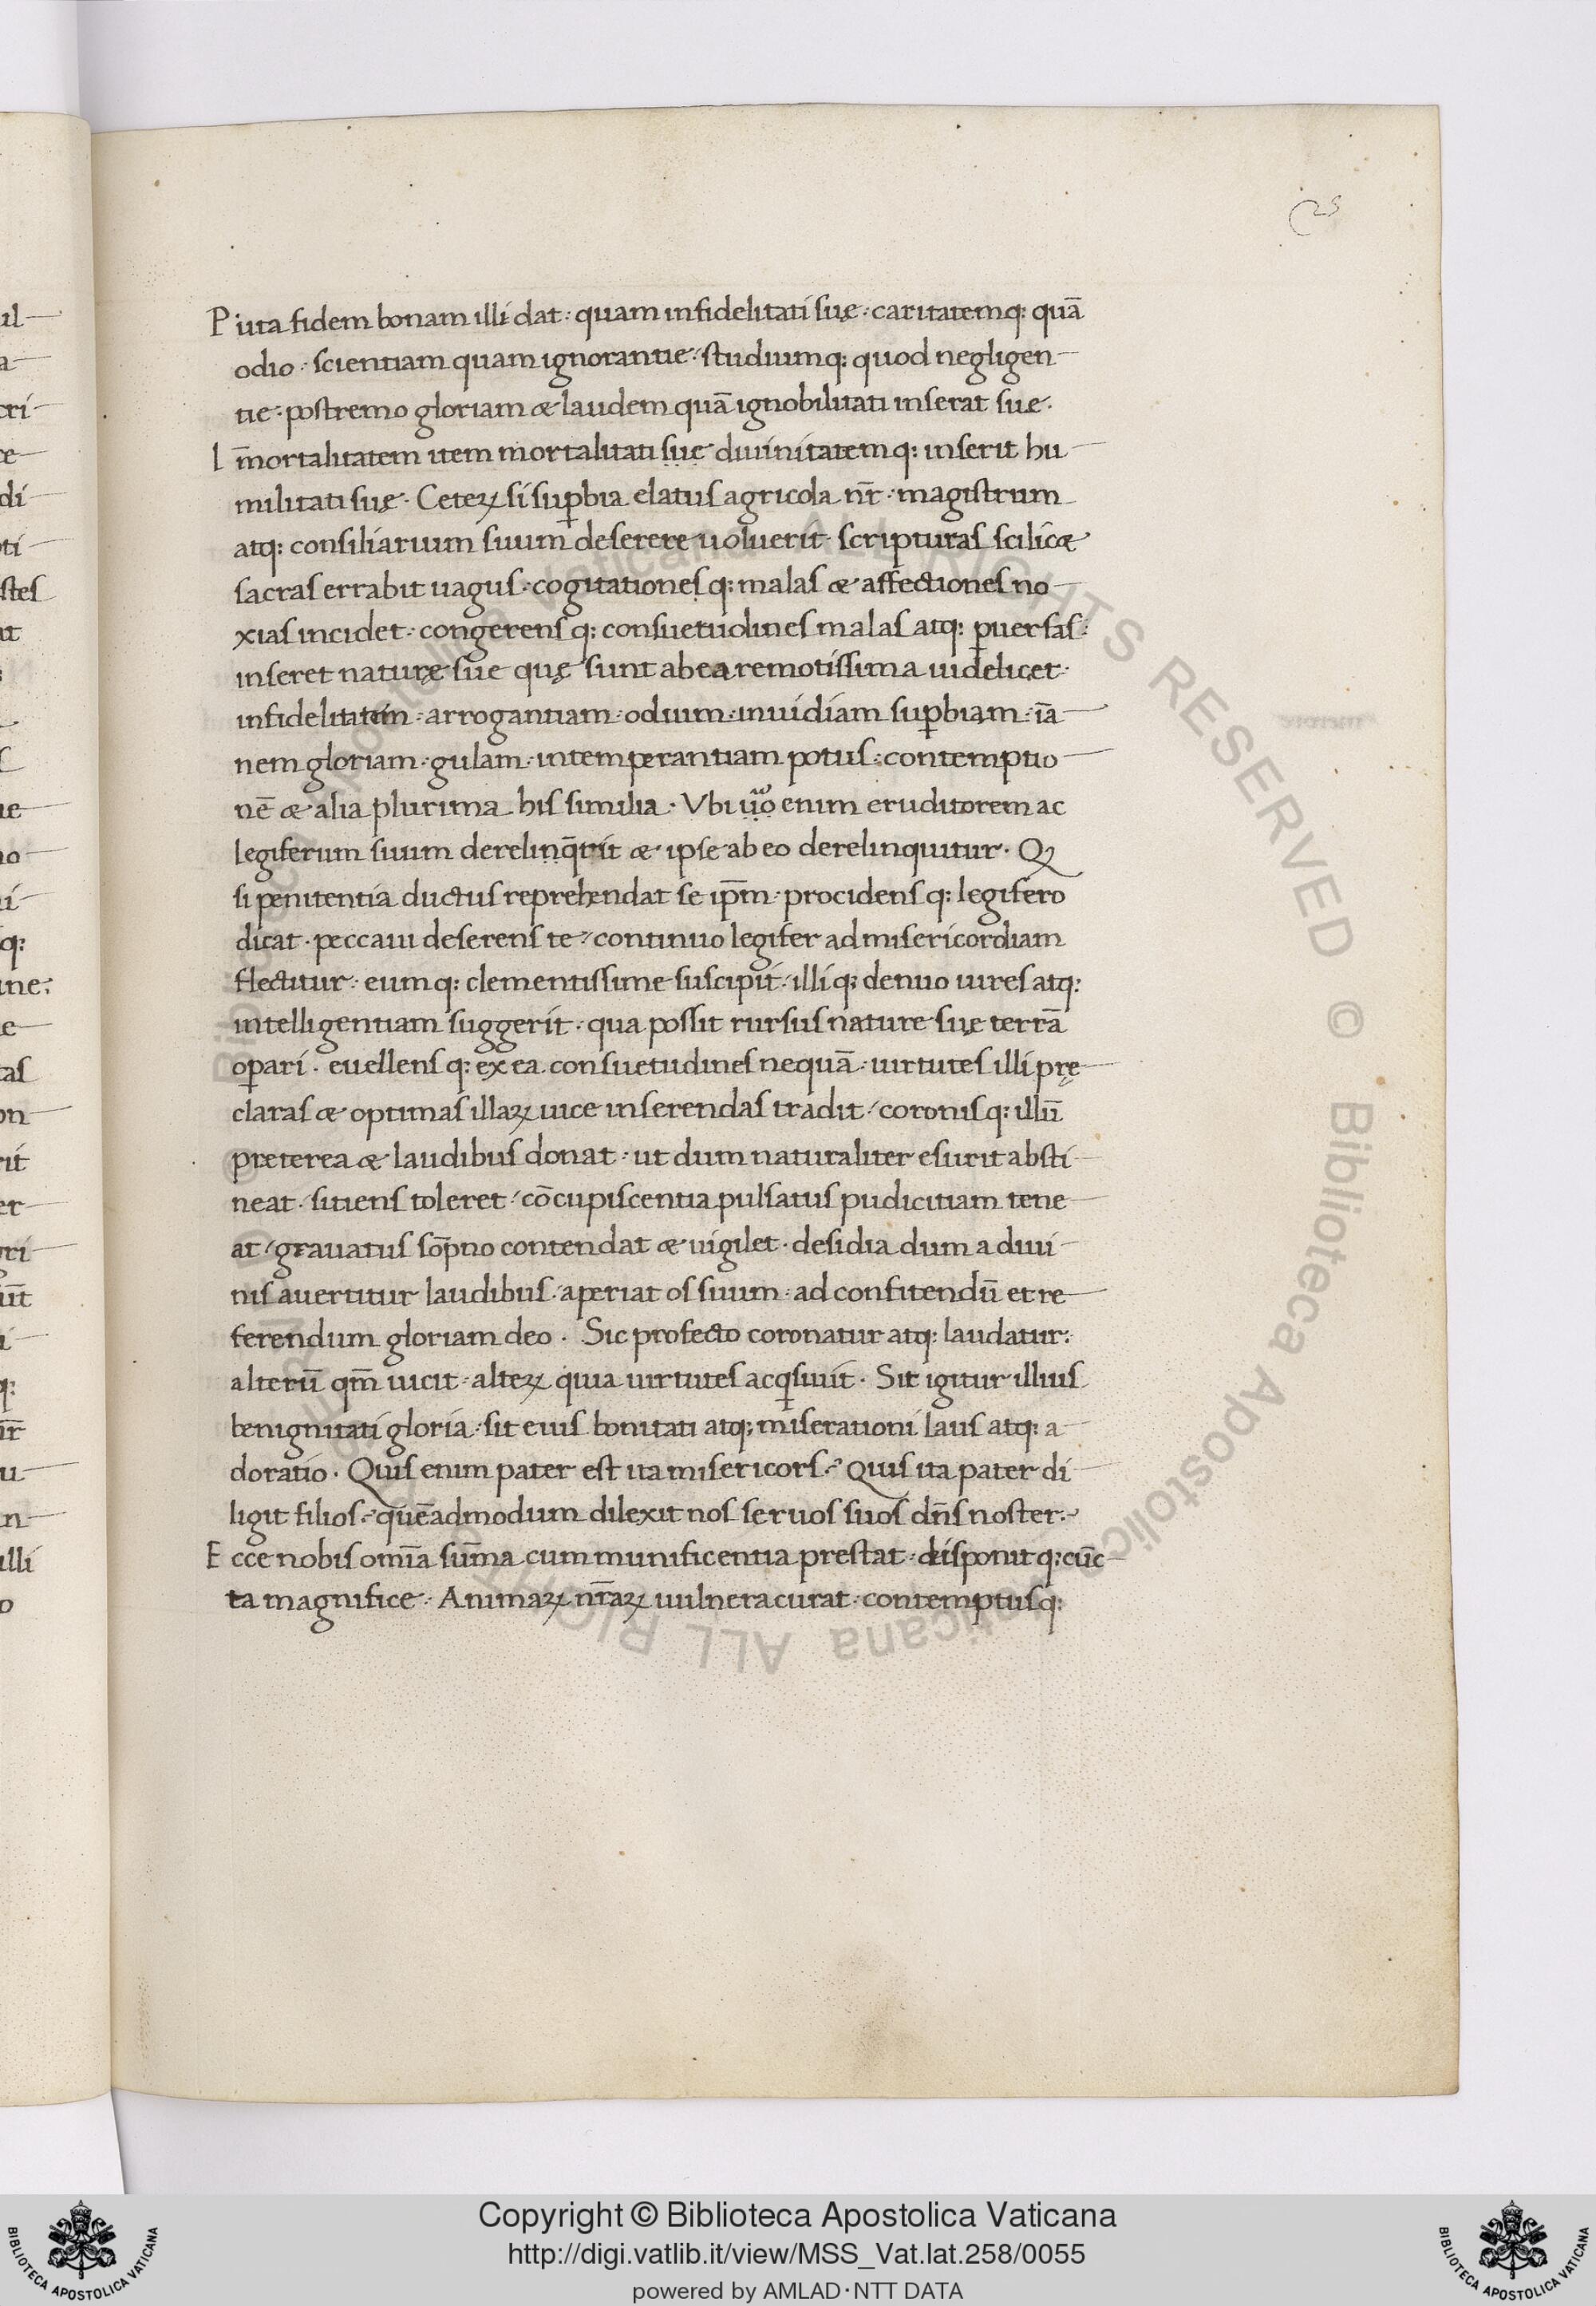 25
Puta fidem bonam illi dat: quam infidelitati suę: caritatemq: quā
odio: scientiam quam ignorantie: studiumq: quod negligen
tie: postremo gloriam & laudem quā ignobilitati inserat sue.
Im̄ortalitatem item mortalitati suę diuinitatemq: inserit hu
militati suę. Ceteꝝ si suꝑbia elatus agricola nr̄: magistrum
atq: consiliarium suum deserere uoluerit scripturas scilic&
sacras errabit uagus: cogitationesq: malas & affectiones no
xias incidet: congerensq: consuetudines malas atq: ꝑuersas:
inseret naturę sue quę sunt ab ea remotissima uidelicet.
infidelitatem: arrogantiam: odium: inuidiam suꝑbiam: iā
nem gloriam: gulam: intemperantiam potus: contemptio
nē & alia plurima his similia. Vbi u̅o enim eruditorem ac
legiferum suum derelinq̄rit & ipse ab eo derelinquitur. Q
si penitentia ductus reprehendat se ip̄m: procidensq: legifero
dicat. peccaui deserens te: continuo legifer ad misericordiam
flectitur: eumq: clementissime suscipit: illiq: denuo uires atq:
intelligentiam suggerit. qua possit rursus nature suę terrā
oꝑari. euellensq: ex ea consuetudines nequā: uirtutes illi prę
claras & optimas illaꝝ uice inserendas tradit: coronisq: illū
preterea & laudibus donat: ut dum naturaliter esurit absti
neat: sitiens toleret: cōcupiscentia pulsatus pudicitiam tene
at: grauatus sōpno contendat & uigilet. desidia dum a diui
nis auertitur laudibus: aperiat os suum: ad confitendū et re
ferendum gloriam deo. Sic profecto coronatur atq: laudatur:
alterū qm̄ uicit: alteꝝ quia uirtutes acq̇siuit. Sit igitur illius
benignitati gloria: sit eius bonitati atq: miserationi laus atq: a
doratio. Quis enim pater est ita misericors? Quis ita pater di
ligit filios? quēadmodum dilexit nos seruos suos dn̄s noster:
Ecce nobis omīa sum̄a cum munificentia prestat: disponitq: cūc
ta magnifice: Animaꝝ nr̄aꝝ uulnera curat: contemptusq:
© Biblioteca Apostolica Vaticana ALL RIGHTS RESERVED
Copyright © Biblioteca Apostolica Vaticana
http://digi.vatlib.it/view/MSS_Vat.lat.258/0055
powered by AMLAD·NTT DATA
BIBLIOTECA APOSTOLICA VATICANA
BIBLIOTECA APOSTOLICA VATICANA